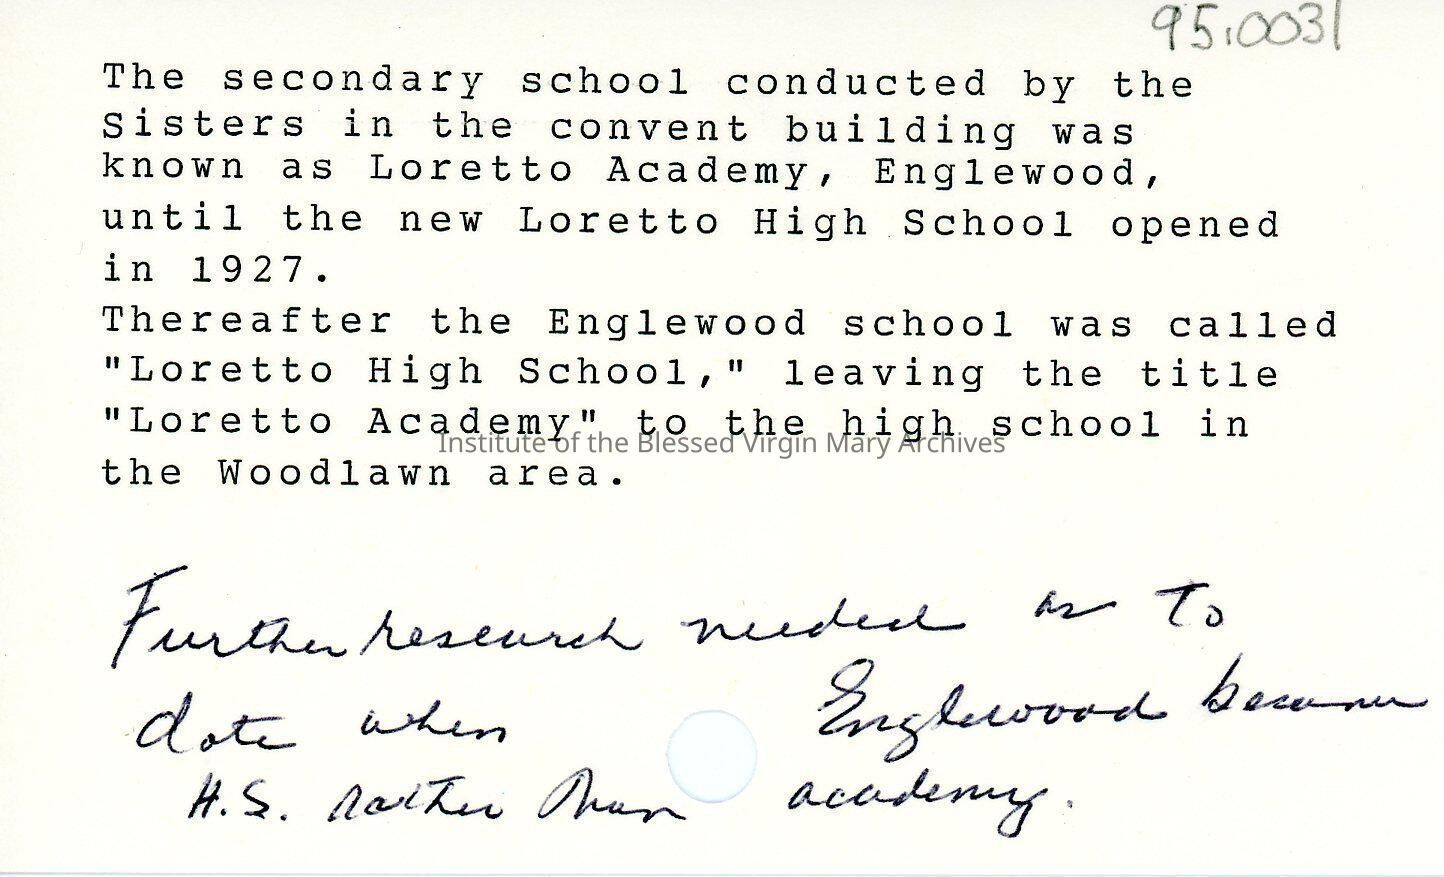 95.0031
The secondary school conducted by the
Sisters in the convent building was
known as Loretto Academy, Englewood,
until the new Loretto High School opened
in 1927.
Thereafter the Englewood school was called
"Loretto High School," leaving the title
"Loretto Academy" to the high school in
Institute of the Blessed Virgin Mary Archives
the Woodlawn area.
Further research needed as to
date when Englewood became
H.S. rather than academy.